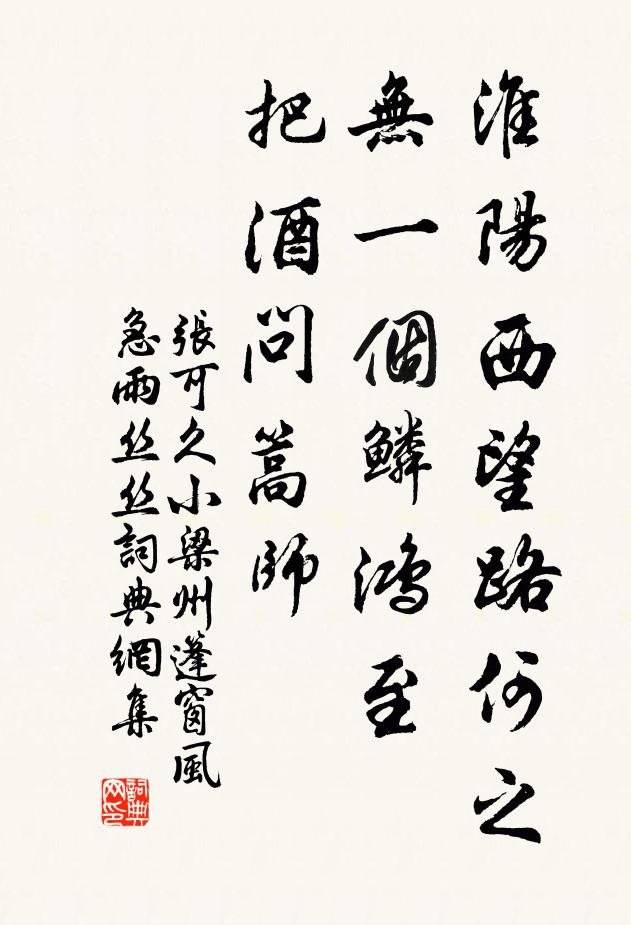 淮陽西望路何之
無一個鱗鴻至
把酒問篙師
張可久小梁州蓬窗風
急雨丝丝詞典網集
詞典
网印